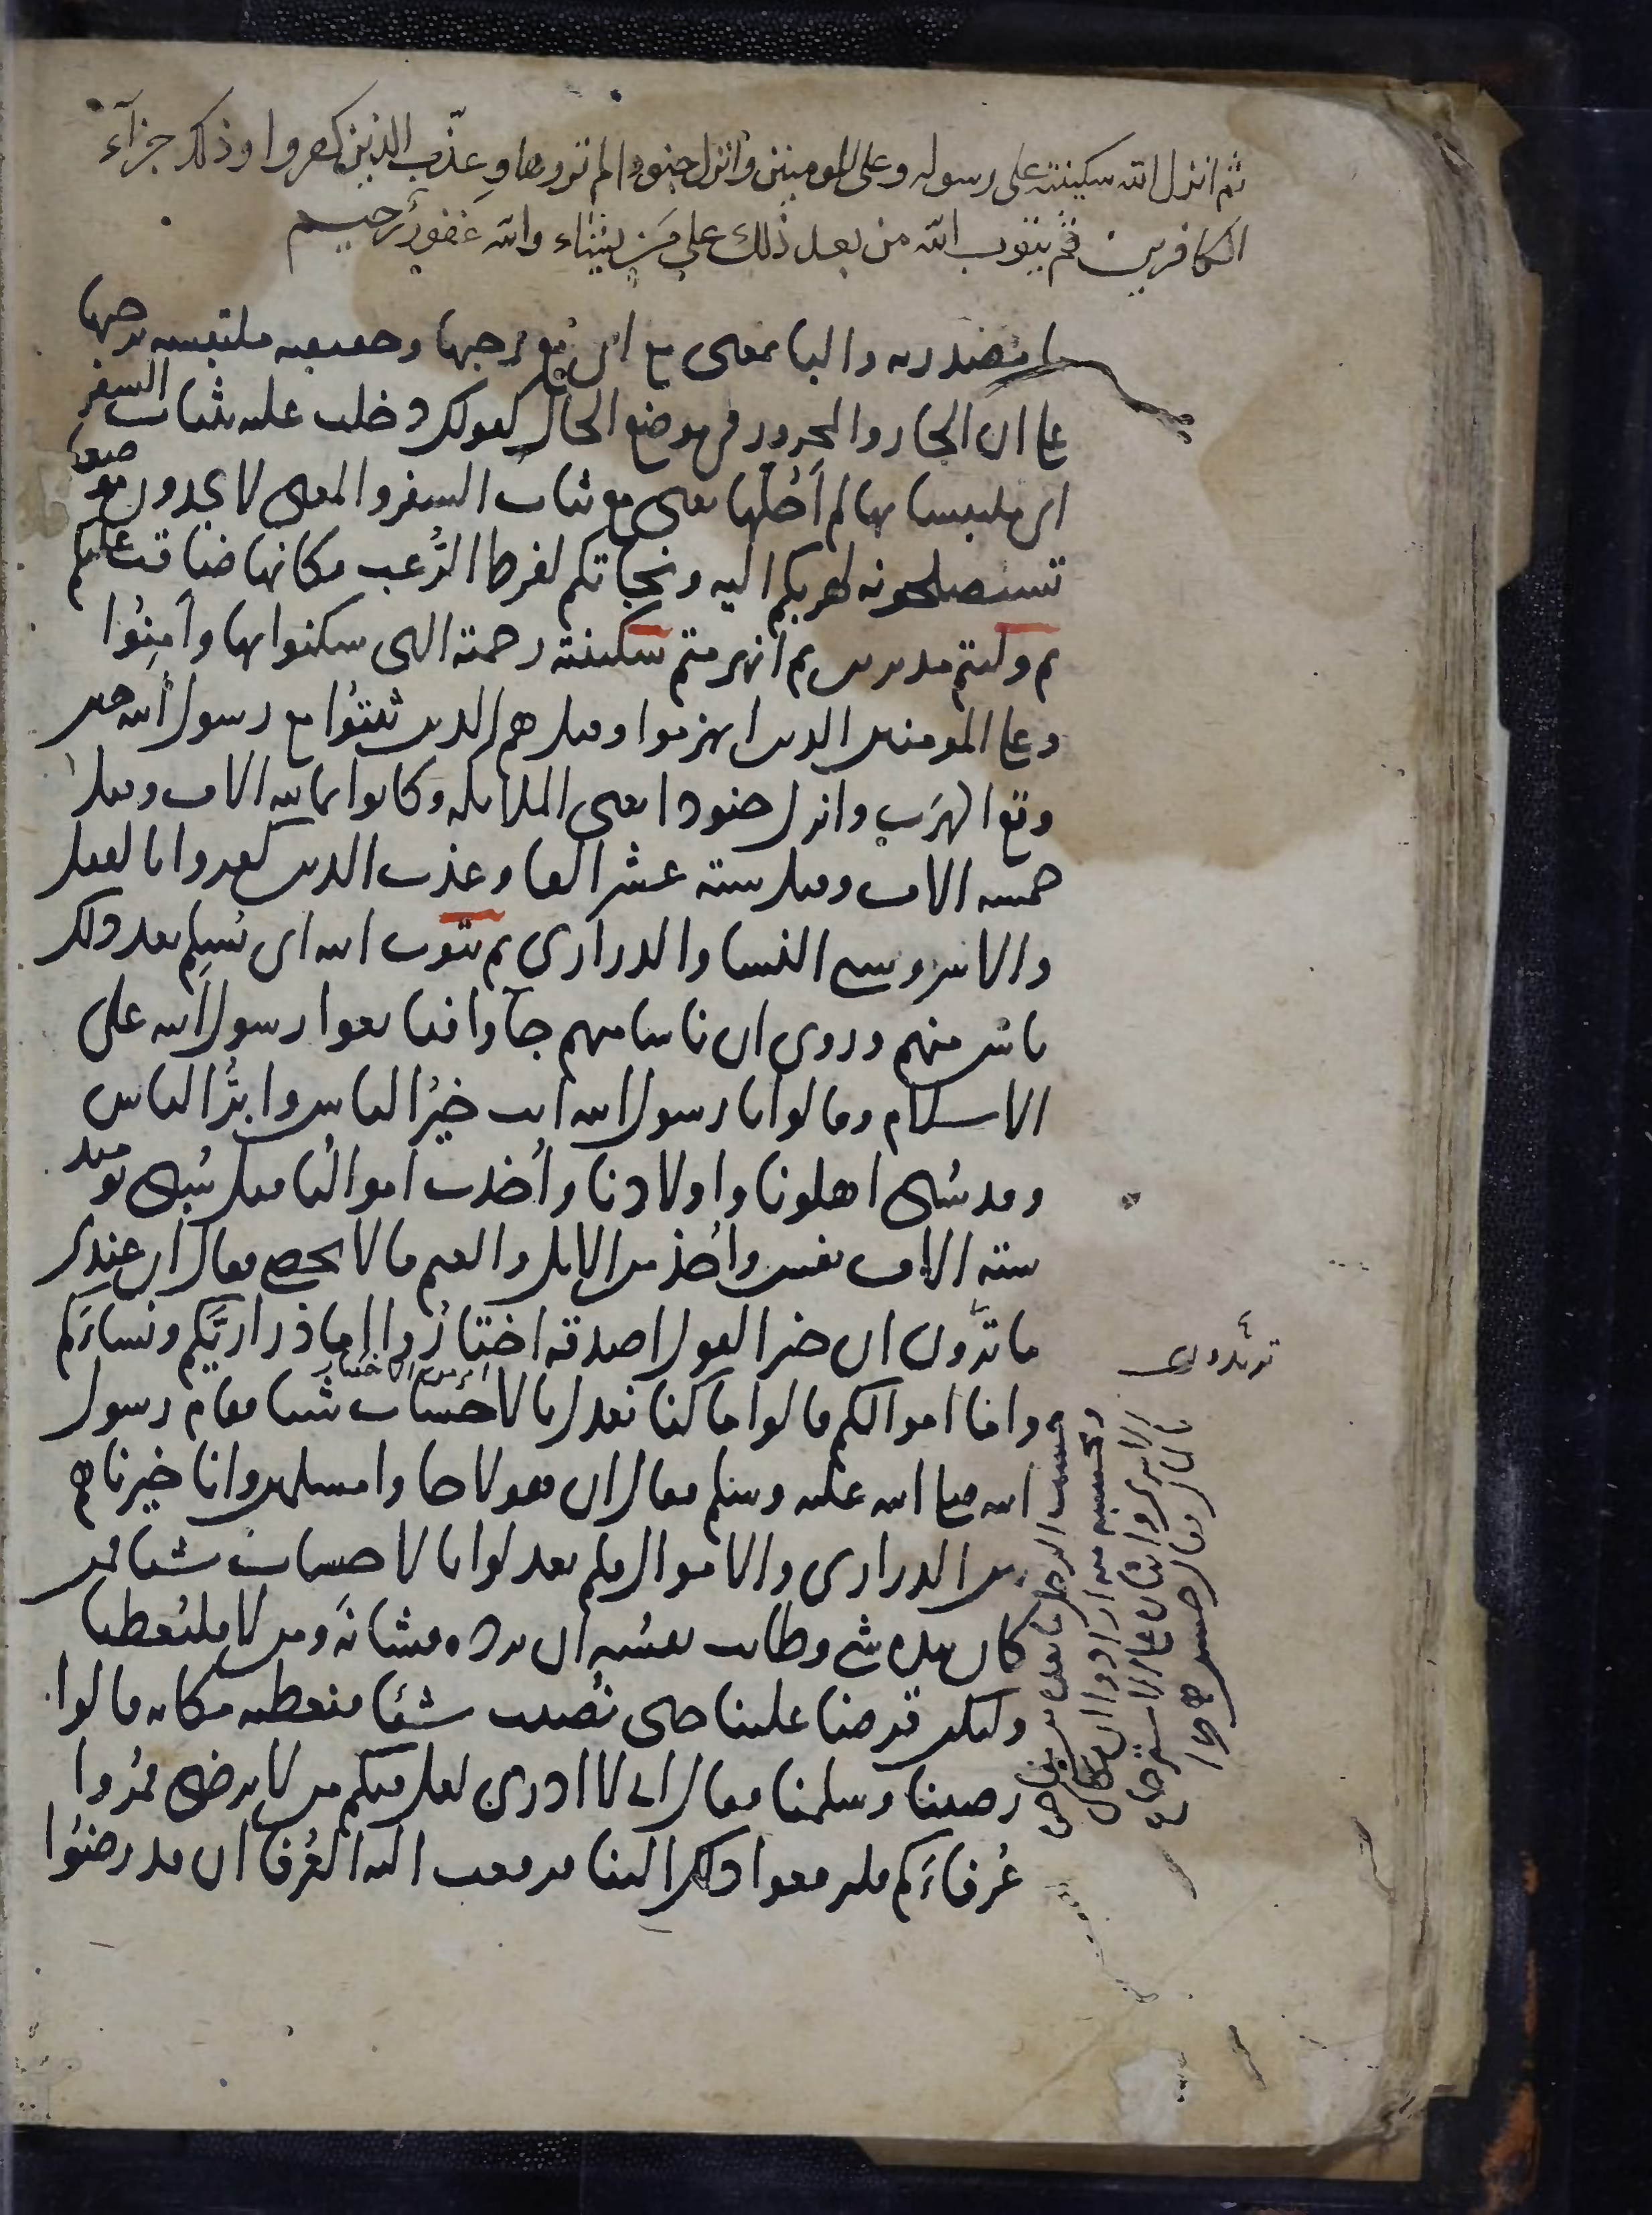 ثم انزل الله سكينته على رسوله وعلى المومنين وانزل جنودا لم تروها وعذّب الذين كفروا وذلك جزآء
الكافرين ثم يتوب الله من بعد ذلك على من يشاء والله غفور رحيم
ما مصدريه والبا بمعنى مع اى مع رحبها وحقيقته ملتبسه برحبها
على ان الجار والمجرور فى موضع الحال كقولك دخلت عليه بثياب السفر
اى ملتبسا بها لم اَحُلَّها تعنى مع ثياب السفر والمعنى لا تجدون موضعا
تستصلحونه لهربكم اليه ونجاتكم لفرط الرُّعب فكانها ضاقت عليكم
ثم وليتم مدبرين ثم انهزمتم سكينته رحمته التى سكنوا بها وآمِنُوا
وعلى المومنين الذين انهزموا وقيل هم الذين ثبتُوا مع رسول الله حين
وقع الهرَب وانزل جنودا يعنى الملايكه وكانوا ثمانيه الاف وقيل
خمسه الاف وقيل ستة عشر الفا وعذب الذين كفروا بالقتل
والاسر وسبى النسا والذرارى ثم يتوب الله اى يُسلِم بعد ذلك
ناس منهم وروى ان ناسا منهم جآوا فبايعوا رسول الله على
الاسلام وقالوا يا رسول الله انت خيرُ الناس وابرُّ الناس
وقد سُبى اهلونا واولادنا واُخذت اموالُنا قيل سُبى يوميذ
ستة الاف نفس واُخذ من الابل والغنم ما لا يحصى فقال ان عندى
ما ترَون ان خير القول اصدقه اختارُوا اما ذراريَّكم ونساءَكم
واما اموالكم قالوا ما كنا نعدل بالاحساب شيا فقام رسول
الله صلى الله عليه وسلم فقال ان هولا جاوا مسلمين وانا خيرناهم
بين الذرارى والاموال فلم يعدلوا بالاحساب شيا فمن
كان بيده شى وطابت نفسُه ان يرده فشانَه ومن لا فليُعطنا
وليكن قرضا علينا حتى نُصيب شيئا فنعطيه مكانه قالوا
رضينا وسلمنا فقال انى لا ادرى لعل فيكم من لا يرضى فمُرُوا
عُرفاءَكم فليرفعوا ذلك الينا فرفعت اليه العُرفا ان قد رضُوا